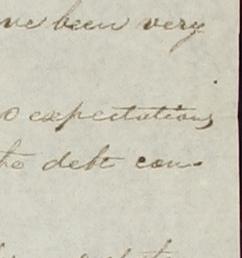 ve been very
o expectations
the debt con-